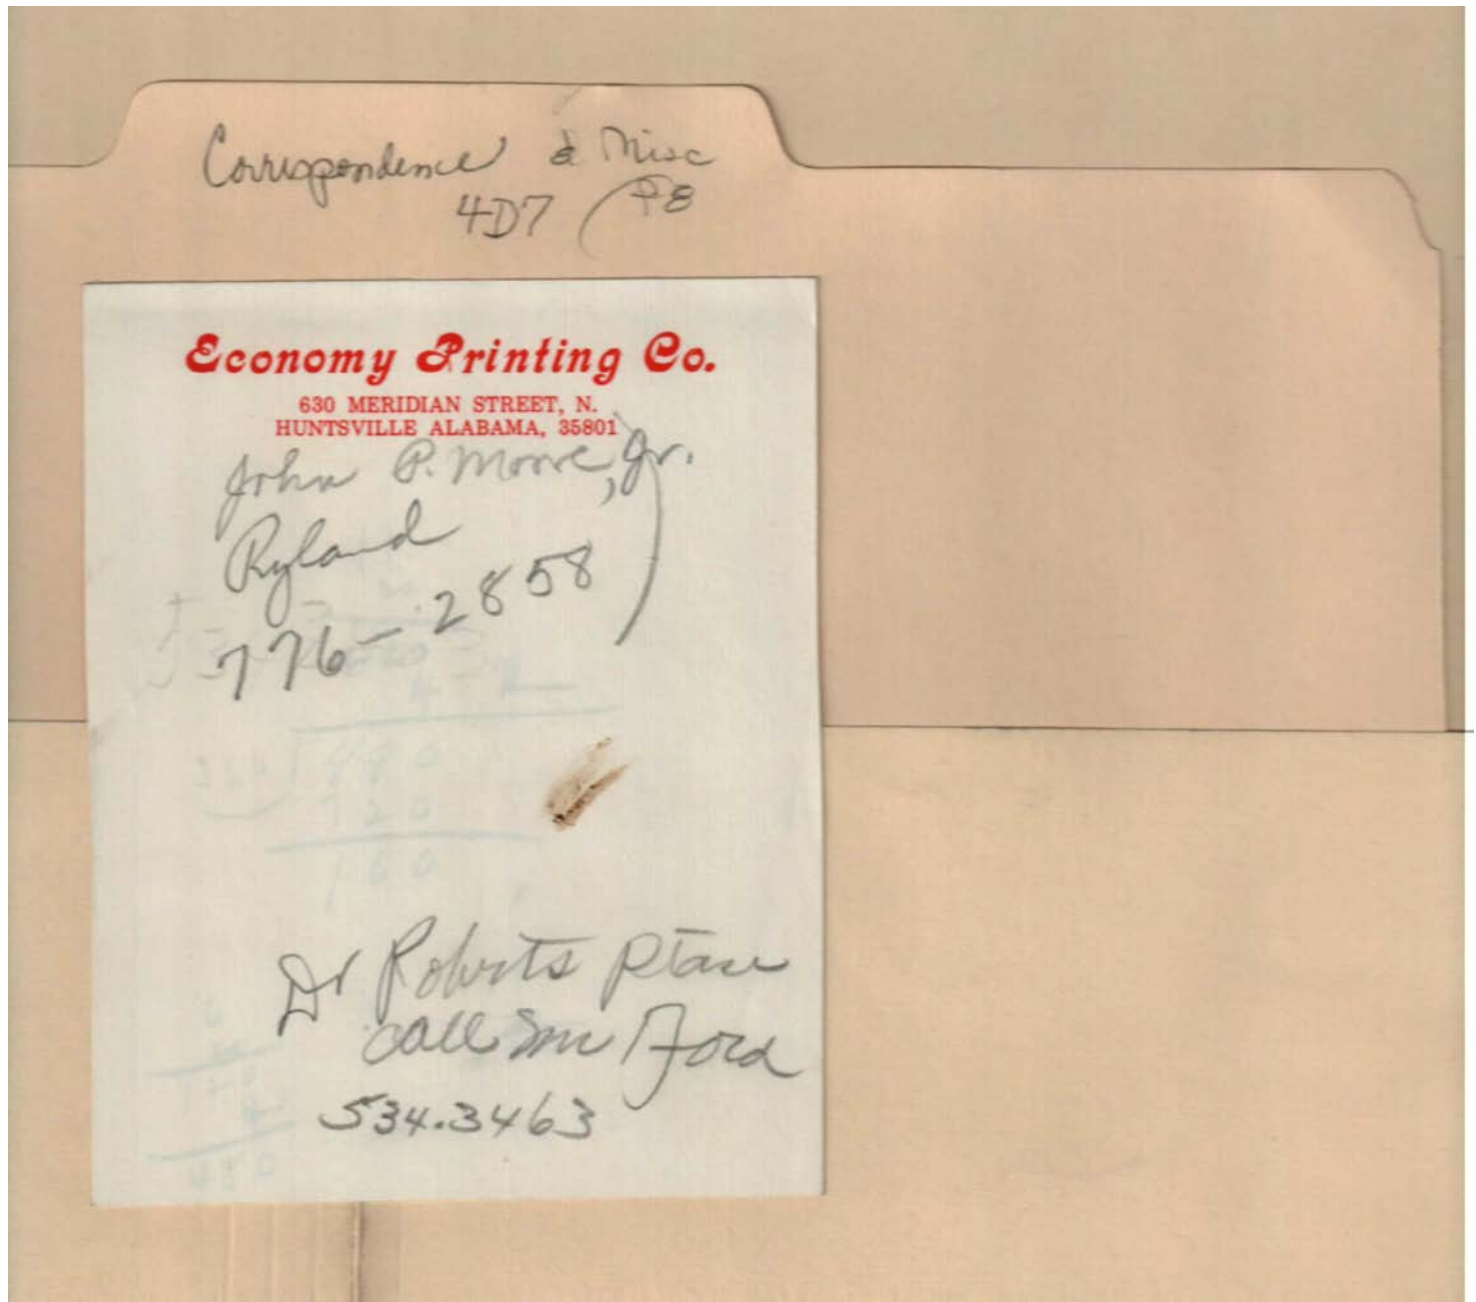 Correspondence & Misc
4D7
Economy Printing Co.
630 MERIDIAN STREET, N.
HUNTSVILLE ALABAMA, 35801
John P. Moore, Jr.
Ryland
776-2858
Dr Roberts Please
call Mr Ford
534.3463